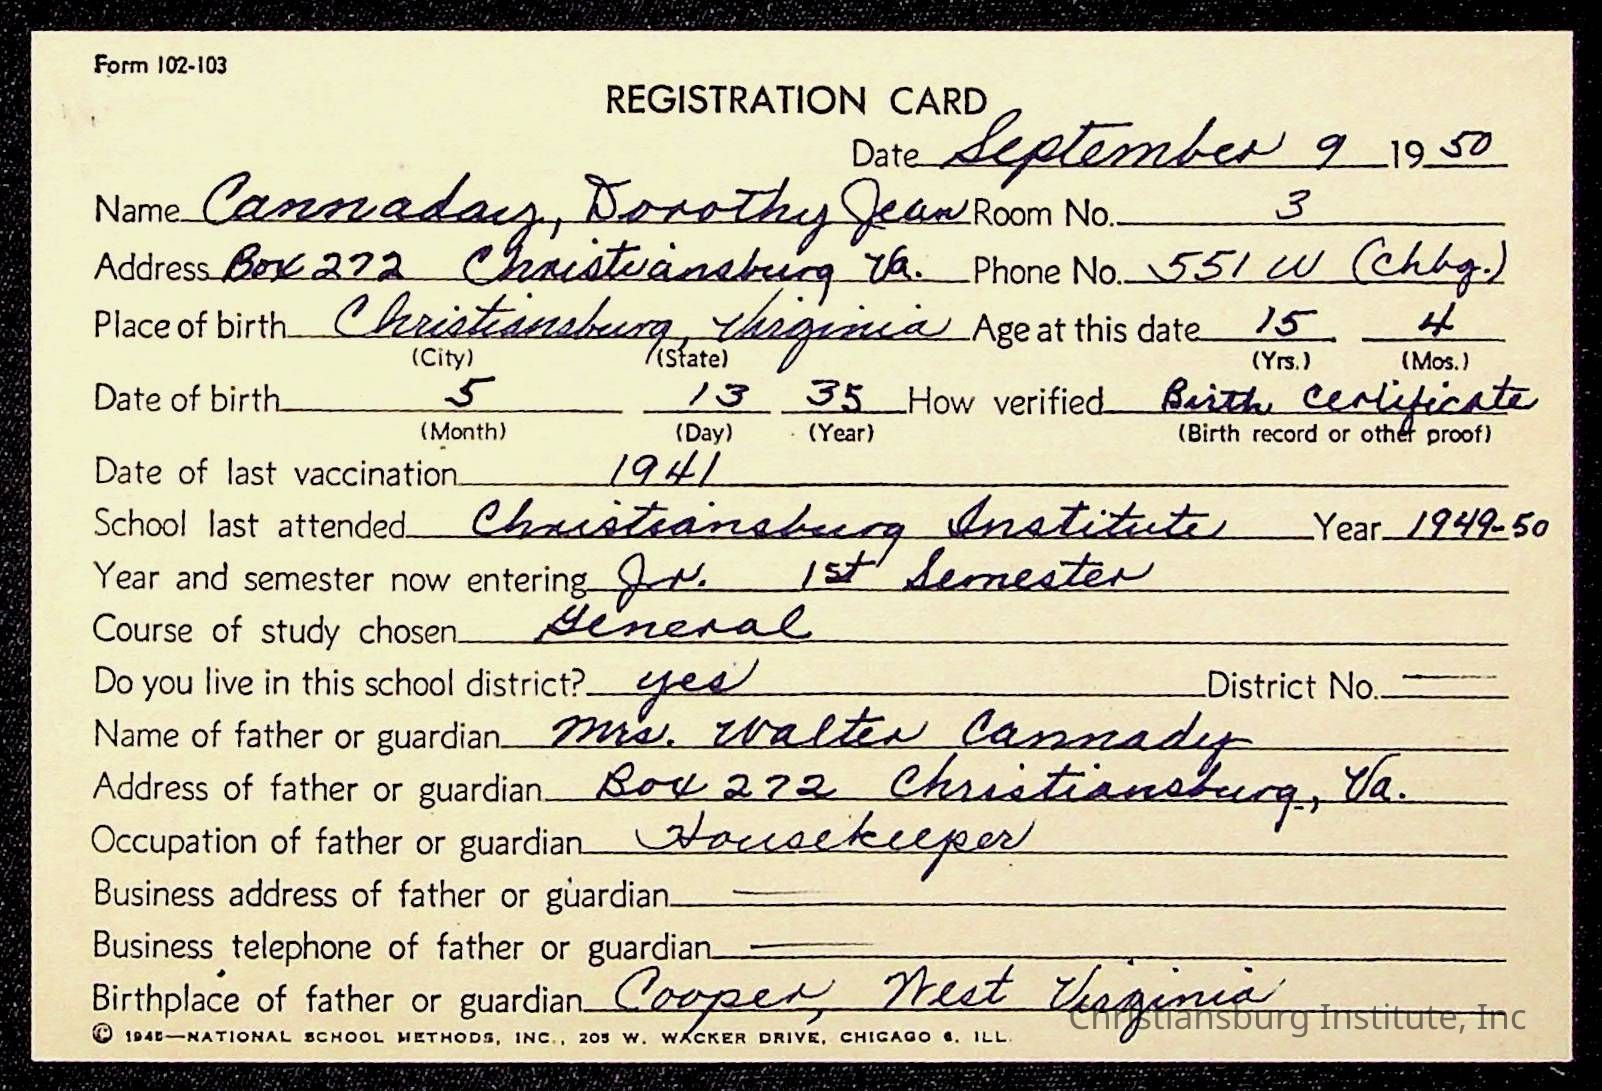 Form 102-103
REGISTRATION CARD
Date September 9 1950
Name Cannaday, Dorothy Jean Room No. 3
Address Box 272 Christiansburg Va. Phone No. 551 W (Chbg.)
Place of birth Christiansburg, Virginia Age at this date 15 4
(City) (State) (Yrs.) (Mos.)
Date of birth 5 13 35 How verified Birth Certificate
(Month) (Day) (Year) (Birth record or other proof)
Date of last vaccination 1941
School last attended Christiansburg Institute Year 1949-50
Year and semester now entering Jr. 1st Semester
Course of study chosen General
Do you live in this school district? yes District No.
Name of father or guardian Mrs. Walter Cannady
Address of father or guardian Box 272 Christiansburg, Va.
Occupation of father or guardian Housekeeper
Business address of father or guardian
Business telephone of father or guardian
Birthplace of father or guardian Cooper, West Virginia
Christiansburg Institute, Inc
© 1945—NATIONAL SCHOOL METHODS, INC., 205 W. WACKER DRIVE, CHICAGO 6, ILL.